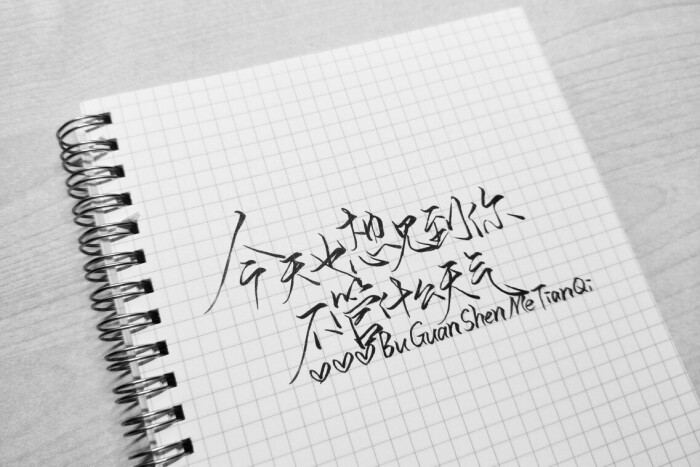 今天也想见到你
不管什么天气
♡♡♡BuGuanShenMeTianQi